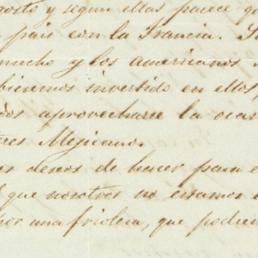 gosto y segun ellas parece q
pais con la Francia. Si
mucho y los americanos
bieramos invertido en ellos,
dos aprovecharse la ocas
tres Mejicanos.
os deseos de hacer para e
l que nosotros no estamos
por una friolera, que podem